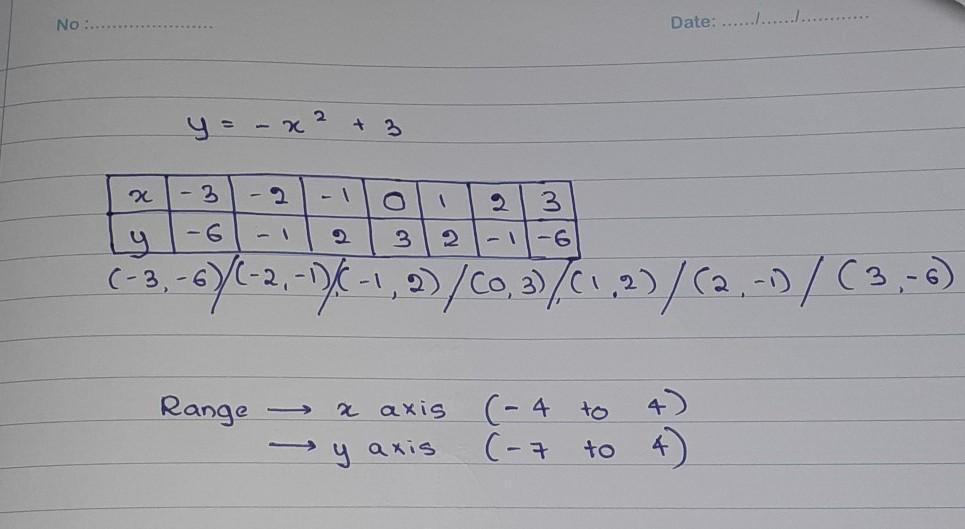 No :........................ Date: ....../....../............
y = - x² + 3
x -3 -2 -1 0 1 2 3
y -6 -1 2 3 2 -1 -6
(-3, -6)/(-2, -1)/(-1, 2) / (0, 3)/(1, 2) / (2, -1) / (3, -6)
Range → x axis (-4 to 4)
→ y axis (-7 to 4)